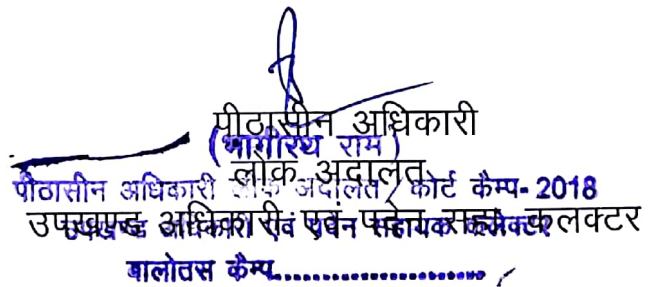 पीठासीन अधिकारी
(भागीरथ राम)
लोक अदालत
पीठासीन अधिकारी लोक अदालत / कोर्ट कैम्प- 2018
उपखण्ड अधिकारी एवं पदेन सहा. कलक्टर
उपखण्ड अधिकारी एवं पदेन सहायक कलेक्टर
बालोतरा कैम्प....................